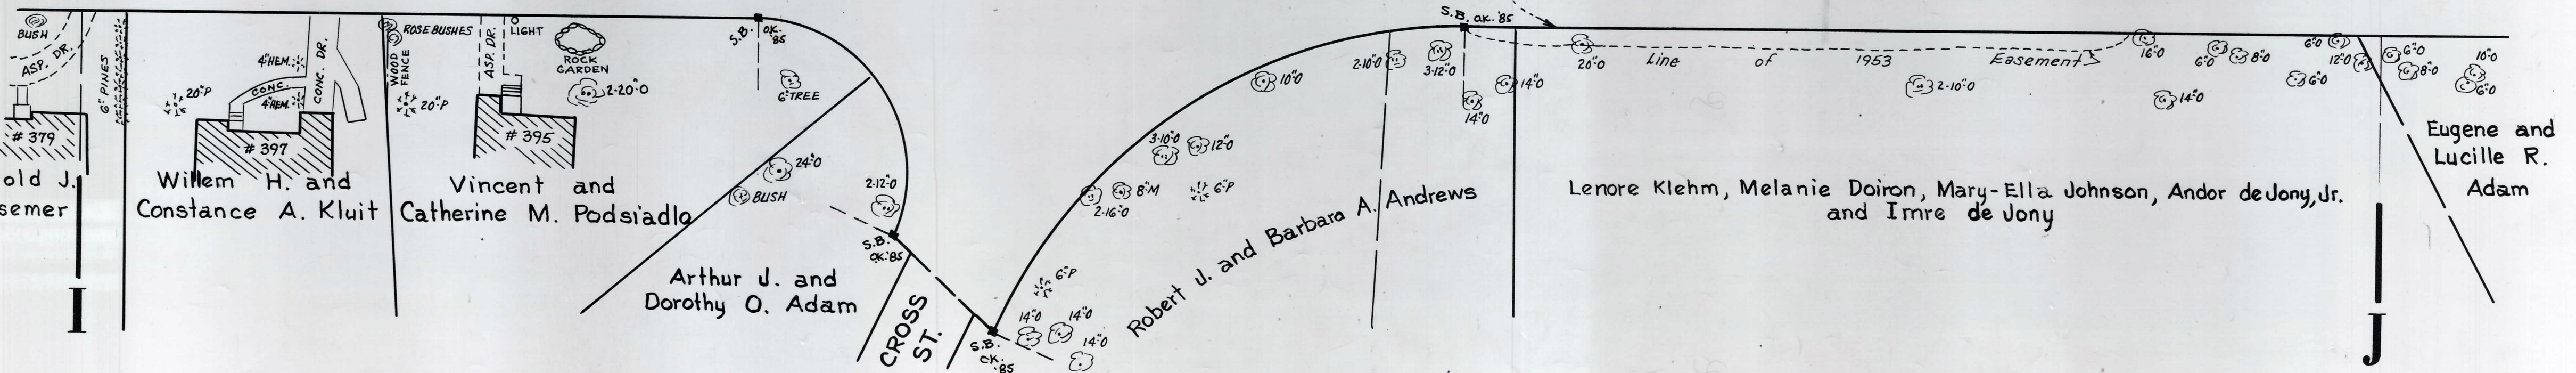 BUSH
ASP. DR.
# 379
old J.
semer
I
6" PINES
20"P
4"HEM.
CONC.
4"HEM.
CONC. DR.
# 397
Willem H. and
Constance A. Kluit
ROSE BUSHES
WOOD
FENCE
20"P
ASP. DR.
LIGHT
ROCK
GARDEN
2-20"O
# 395
Vincent and
Catherine M. Podsiadlo
S.B. OK.
'85
6" TREE
24"O
BUSH
2-12"O
S.B.
OK.'85
Arthur J. and
Dorothy O. Adam
CROSS
ST.
S.B.
OK.
'85
6"P
14"O
14"O
14"O
2-16"O
8"M
6"P
3-10"O
12"O
10"O
Robert J. and Barbara A. Andrews
2-10"O
3-12"O
S.B. OK.'85
14"O
14"O
20"O
Line of 1953 Easement
2-10"O
16"O
14"O
6"O
8"O
6"O
6"O
12"O
Lenore Klehm, Melanie Doiron, Mary-Ella Johnson, Andor deJony, Jr.
and Imre de Jony
J
6"O
8"O
10"O
6"O
Eugene and
Lucille R.
Adam